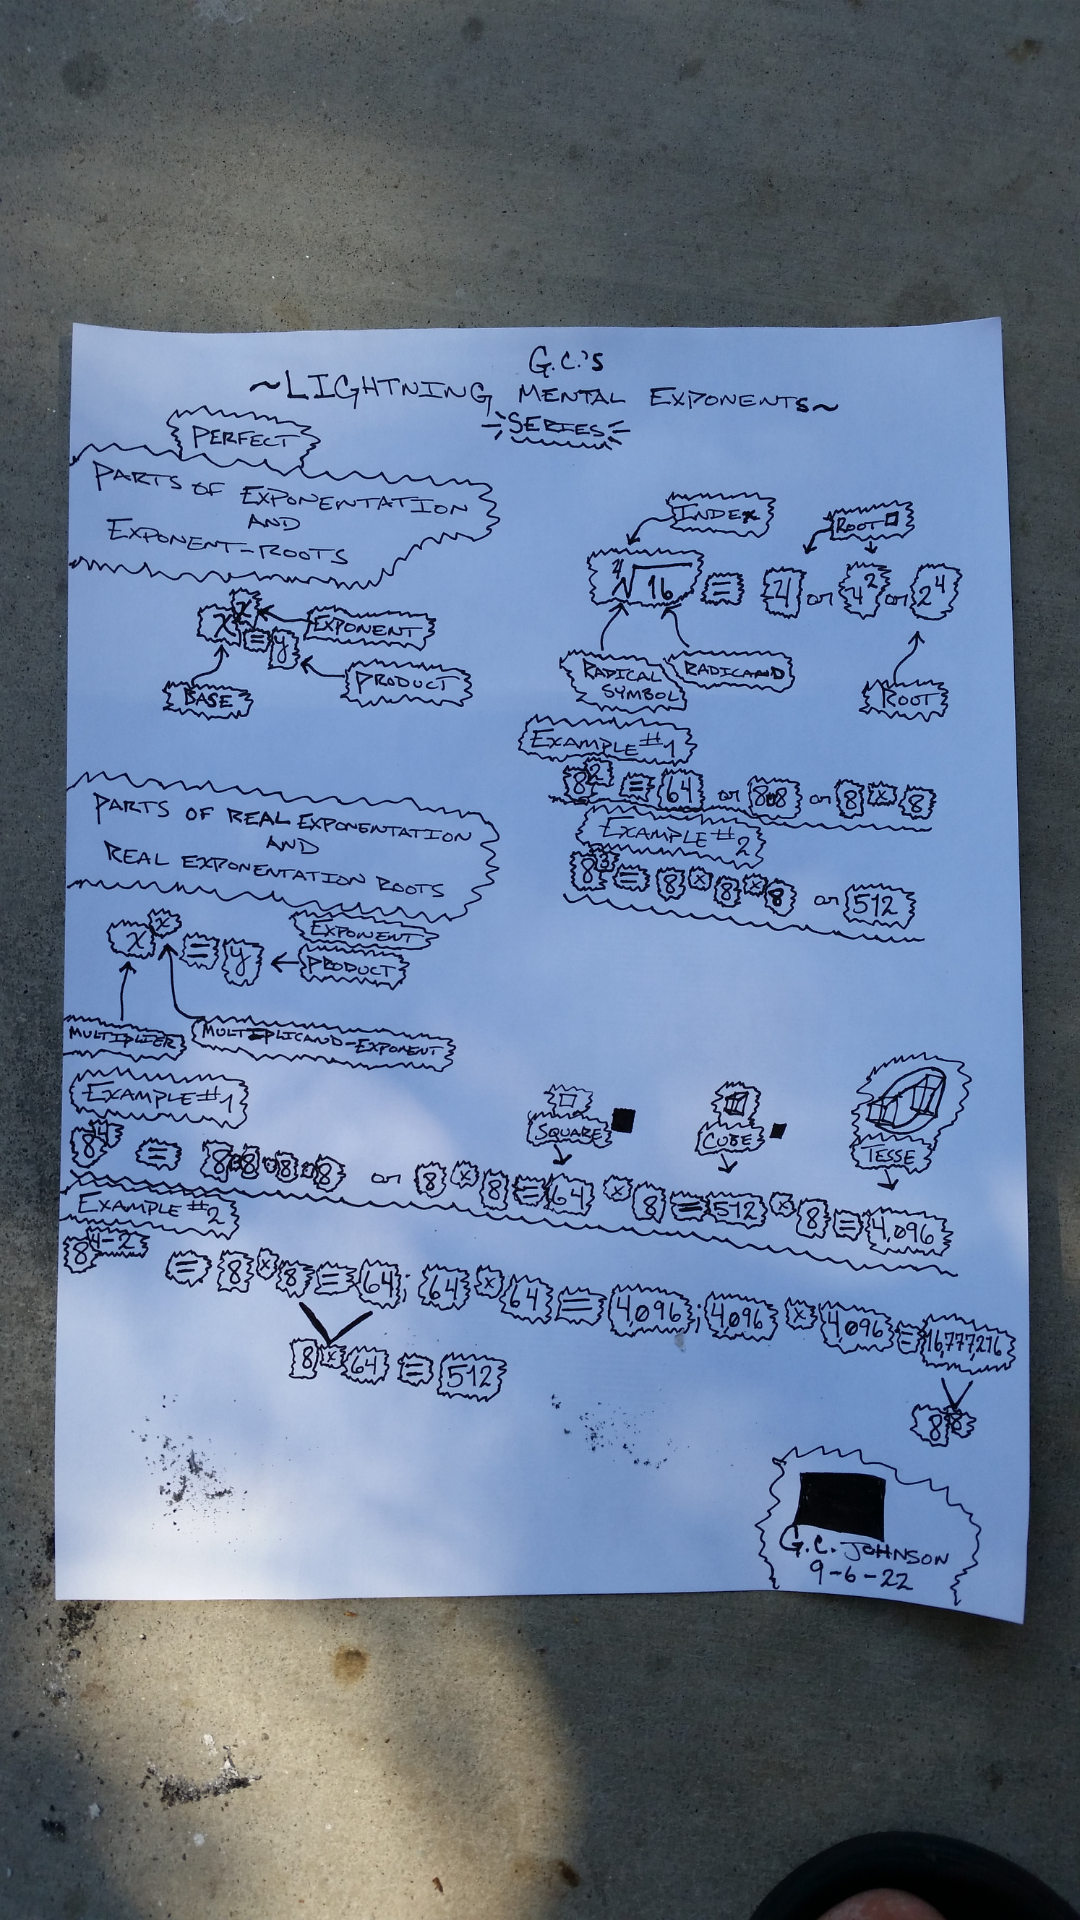 G.C.'s
~LIGHTNING MENTAL EXPONENTS~
SERIES
PERFECT
PARTS OF EXPONENTATION
AND
EXPONENT-ROOTS
x^x = y
EXPONENT
PRODUCT
BASE
INDEX
ROOT □
∜16 = 4 or 4² or 2⁴
RADICAL
SYMBOL
RADICAND
ROOT
EXAMPLE #1
8² = 64 or 8•8 or 8 x 8
EXAMPLE #2
8³ = 8 x 8 x 8 or 512
PARTS OF REAL EXPONENTATION
AND
REAL EXPONENTATION ROOTS
x^x = y
EXPONENT
PRODUCT
MULTIPLIER
MULTIPLICAND-EXPONENT
EXAMPLE #1
SQUARE
CUBE
TESSE
8⁴ = 8•8•8•8 or 8 x 8 = 64 x 8 = 512 x 8 = 4,096
EXAMPLE #2
8⁴⁻² = 8 x 8 = 64; 64 x 64 = 4,096; 4,096 x 4,096 = 16,777,216
8 x 64 = 512
8⁸
G.C. JOHNSON
9-6-22